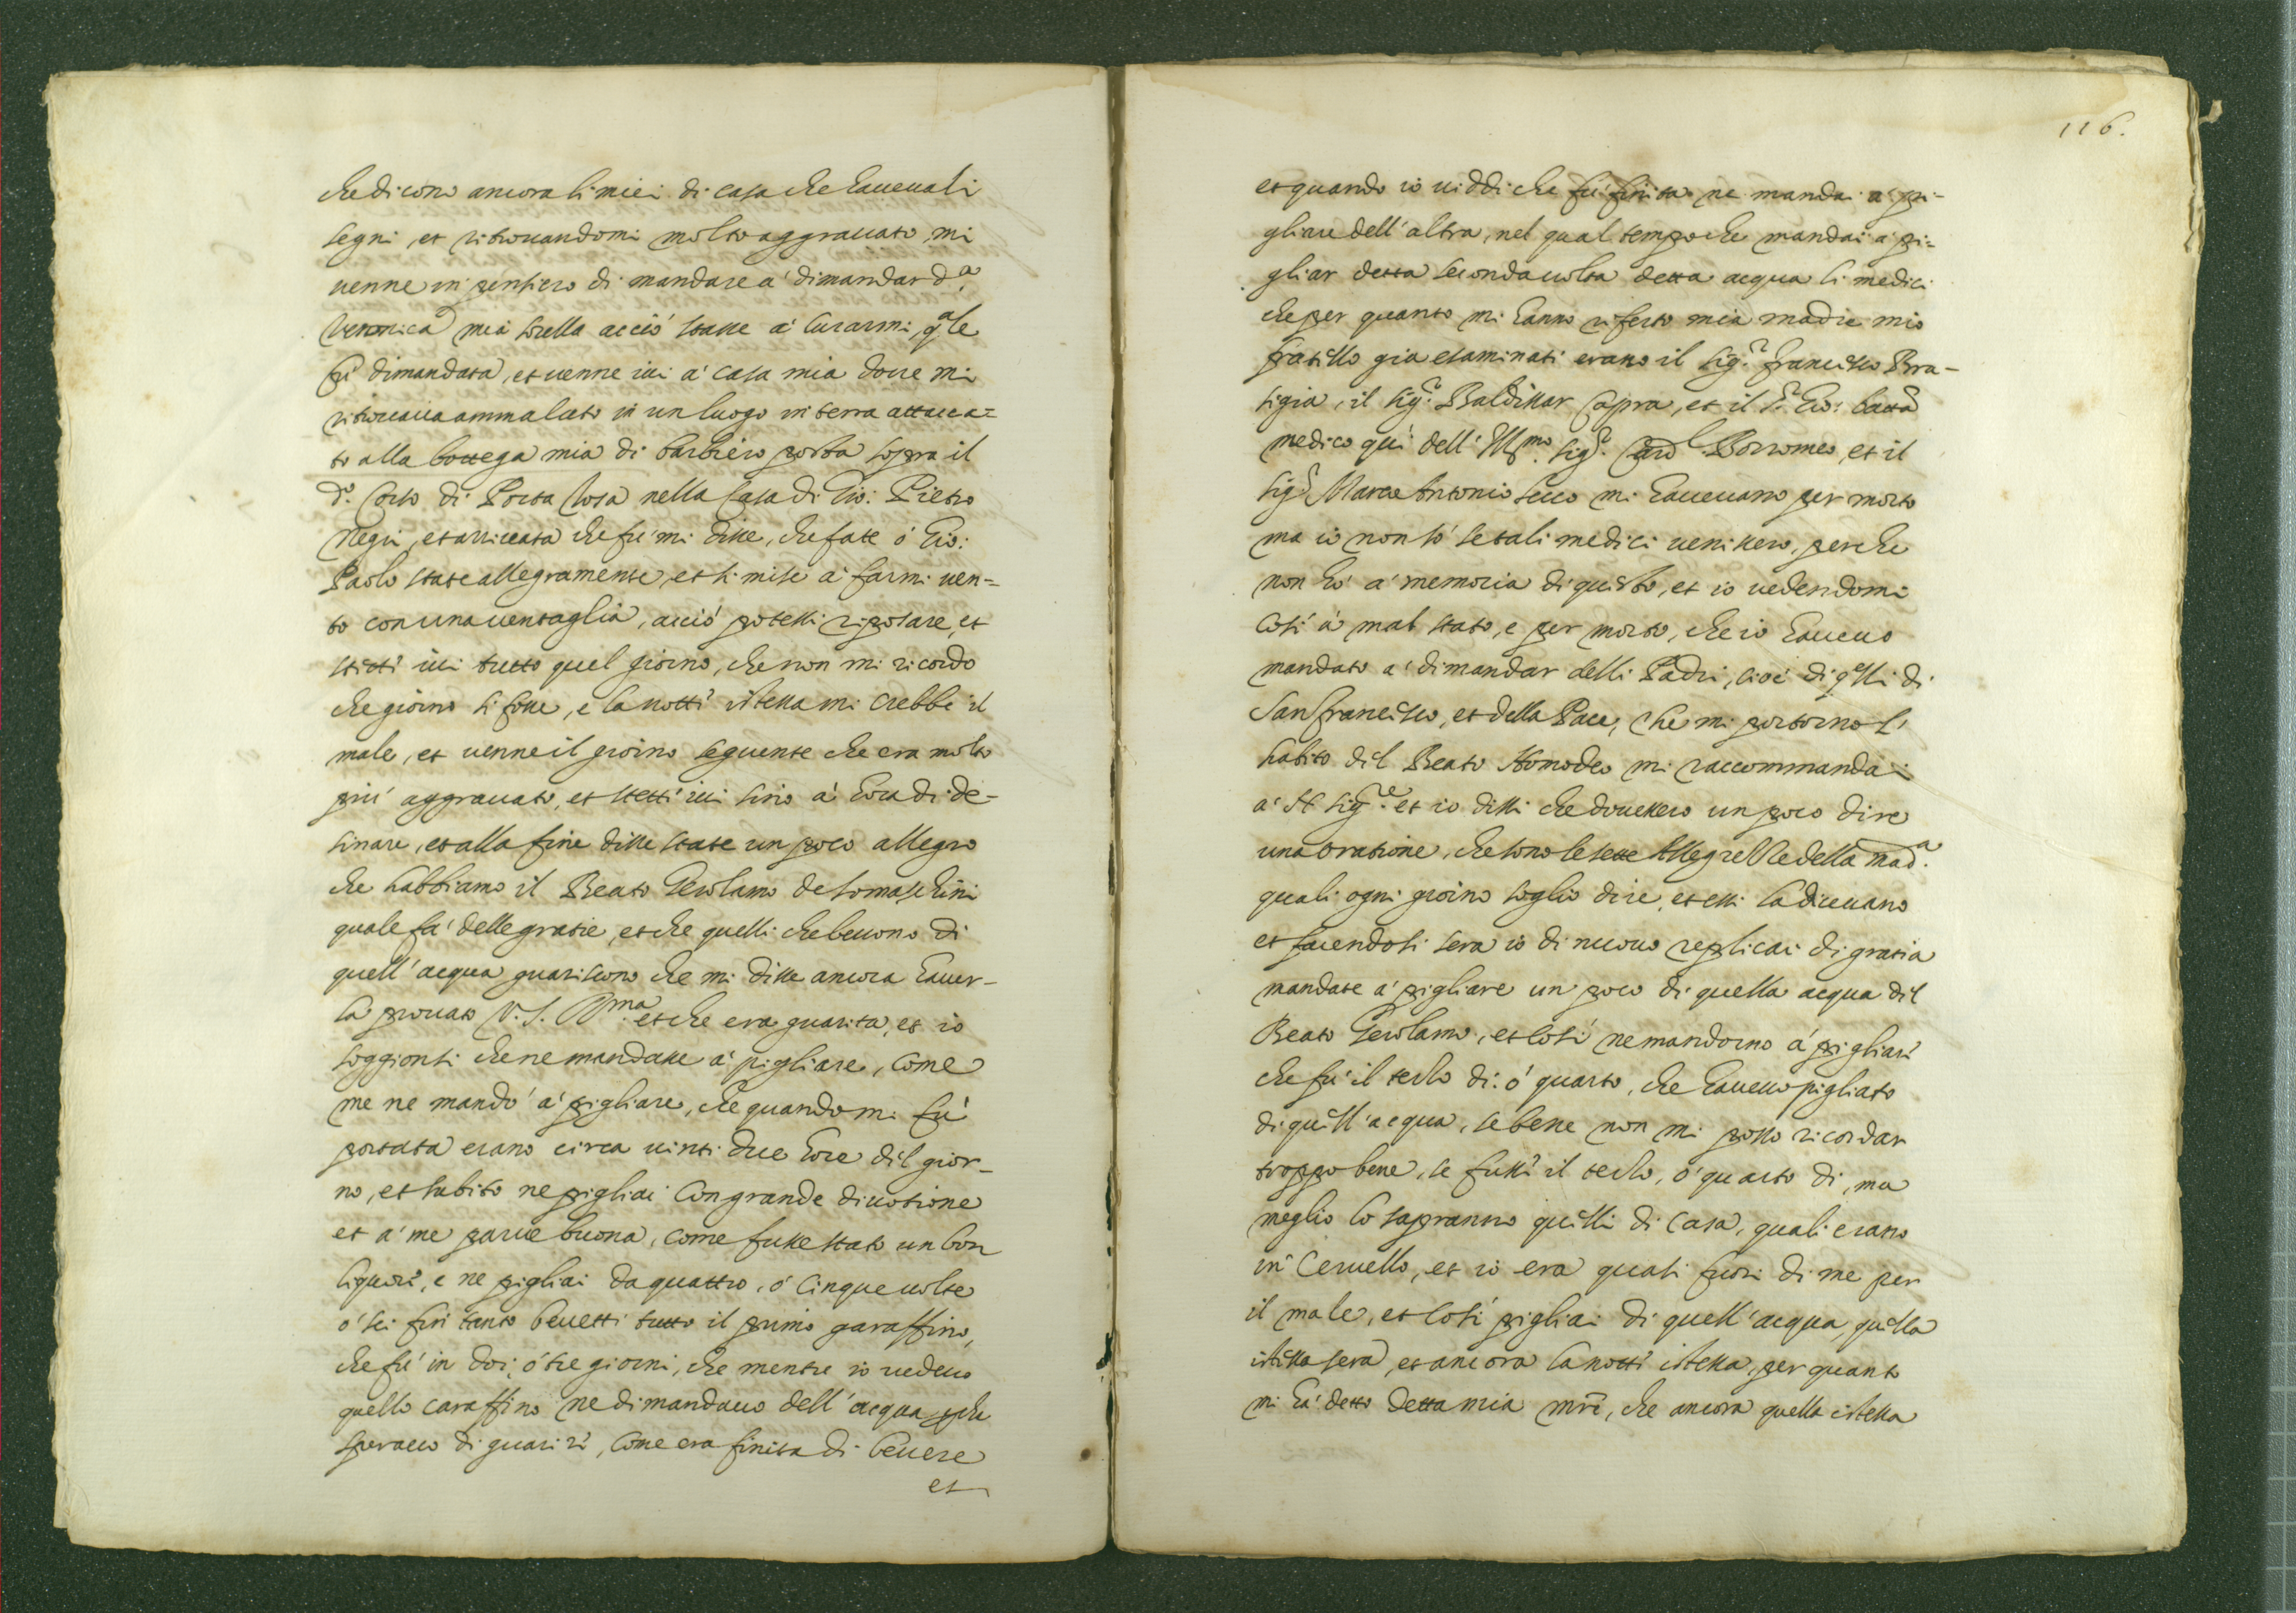 che dicono ancora li miei di casa che haueuali
segni, et ritrouandomi molto aggrauato, mi
uenne in pensiero di mandare a' dimandar d.a
Veronica mia sorella acciò stasse a' curarmi, q.ale
fù dimandata, et uenne iui a' casa mia doue mi
ritrouaua ammalato in un luogo in terra attacca=
to alla bottega mia di barbiero posta sopra il
d.o Corso di Porta Tosa nella Casa di Gio: Pietro
Negri, et arriuata che fù mi disse, che fate ò Gio:
Paolo state allegramente, et si mise a' farmi uen=
to con una uentaglia, acciò potessi riposare, et
stetti iui tutto quel giorno, che non mi ricordo
che giorno si fosse, e la notte istessa mi crebbe il
male, et uenne il giorno seguente che era molto
più aggrauato, et stetti iui sino a' hora di de-
sinare, et alla fine disse state un poco allegro
che habbiamo il Beato Gerolamo de somaschini
quale fa' delle gratie, et che quelli che beuono di
quell'acqua guariscono che mi disse ancora hauer-
la prouato V. S. Ill.ma et che era guarita, et io
soggionsi che ne mandasse a' pigliare, come
me ne mandò a' pigliare, che quando mi fù
portata erano circa uinti due hore dil gior-
no, et subito ne pigliai con grande diuotione
et a' me parue buona, come fusse stato un bon
liquore, e ne pigliai da quattro, ò cinque uolte
ò sei fin tanto beuetti tutto il primo garaffino,
che fù in doi, ò tre giorni, che mentre io uedeuo
quello caraffino ne dimandauo dell'acqua, che
sperauo di guarire, come era finita di beuere
et
116.
et quando io uiddi che fù finita ne mandai a' pi-
gliare dell'altra, nel qual tempo che mandai a' pi=
gliar detta seconda uolta detta acqua li medici
che per quanto mi hanno riferto mia madre mio
fratello gia esaminati erano il sig.r Francesco Bra-
sigia, il sig.r Baldissar Capra, et il s.r Gio: batta
medico qui dell'Ill.mo sig.r Card.l Borromeo, et il
sig.r Marco Antonio Secco mi haueuano per morto
ma io non sò se tali medici uenissero, perche
non hò a' memoria di questo, et io uedendomi
così a mal stato, e per morto, che io haueuo
mandato a' dimandar delli Padri, cioè di q.elli di
San Francesco, et della Pace, che mi portorno l'
habito dil Beato Homodeo mi raccommandai
a' N. Sig.re et io dissi che douessero un poco dire
una oratione, che sono le sette Allegrezze della Mad.a
quali ogni giorno soglio dire, et essi la diceuano
et facendosi sera io di nuouo replicai di gratia
mandate a' pigliare un poco di quella acqua dil
Beato Gerolamo, et così ne mandorno a' pigliare
che fù il terzo dì ò quarto, che haueuo pigliato
di quell'acqua, se bene non mi posso ricordar
troppo bene, se fusse il terzo, ò quarto dì, ma
meglio lo sapranno quelli di casa, quali erano
in Ceruello, et io era quasi fuori di me per
il male, et così pigliai di quell'acqua, quella
istessa sera, et ancora la notte istessa, per quanto
mi hà detto detta mia mre, che ancora quella istessa